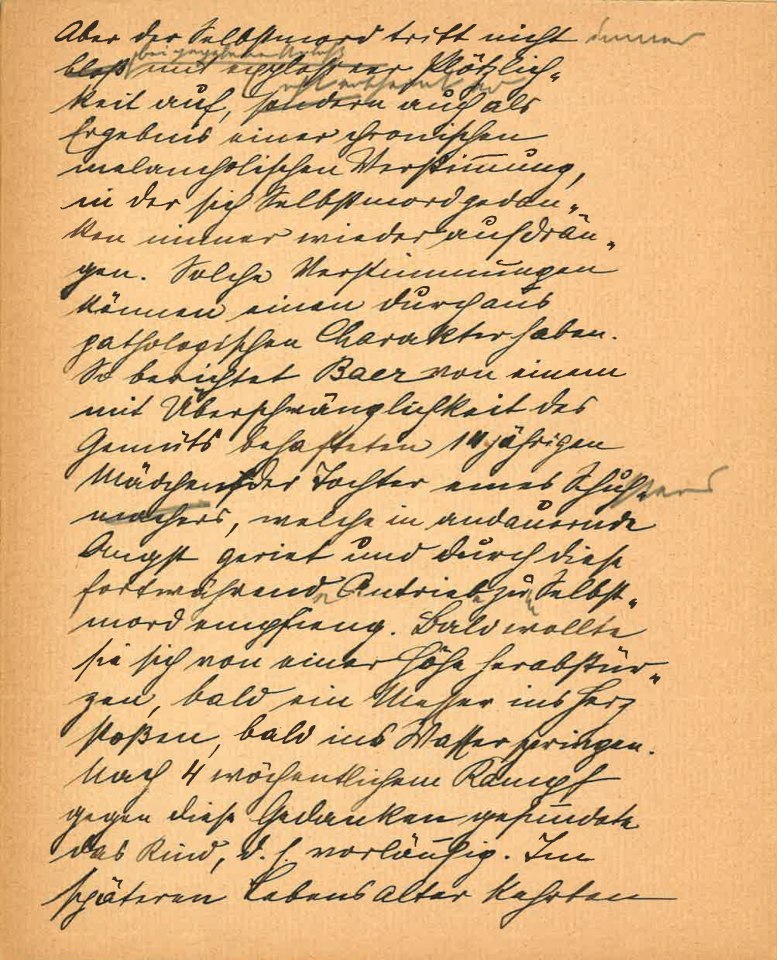 Aber der Selbstmord tritt nicht immer
bloß bei gegebenem Anlaß mit Plötzlich-
keit auf, sondern auch als
Ergebnis einer chronischen
melancholischen Verstimmung,
in der sich Selbstmordgedan-
ken immer wieder aufdrän-
gen. Solche Verstimmungen
können einen durchaus
pathologischen Charakter haben.
So berichtet Baer von einem
mit Überschwänglichkeit des
Gemüts behafteten 14jährigen
Mädchen, der Tochter eines Schuh-
machers, welche in andauernde
Angst geriet und durch diese
fortwährend Antrieb zu Selbst-
mord empfieng. Bald wollte
sie sich von einer Höhe herabstür-
zen, bald ein Messer ins Herz
stoßen, bald ins Wasser springen.
Nach 4 wöchentlichem Kampf
gegen diese Gedanken gesundete
das Kind, d. h. vorläufig. Im
späteren Lebensalter kehrten